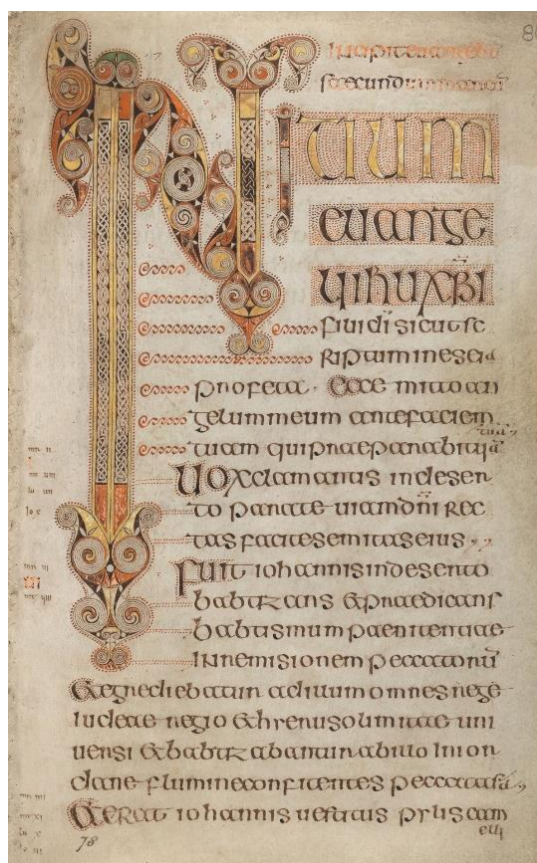 Incipit euangelium
secundum marcum
INITIUM
EUANGE
LII IHU XPI
filii di sicut sc
riptum in esaia
profeta · Ecce mitto an
gelum meum ante faciem
tuam qui praeparabit
tuā
UOX clamantis in deser
to parate uiam dni rec
tas facite semitas eius
FUIT iohannis in deserto
babtizans & praedicans
babtismum paenitentiae
in remisionem peccatorū
& egrediebatur ad illum omnes
iudeae regio & hierusolimitae uni
uersi & babtizabantur ab illo in ior
dane flumine confitentes peccata sua
& ERAT iohannis uestitus pylis cam
elli
78